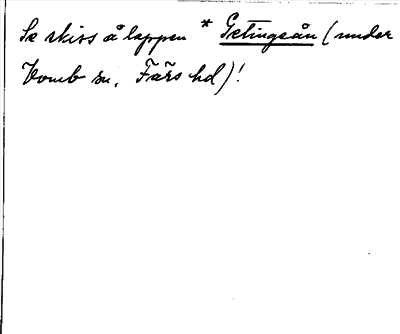 Se skiss å lappen * Getingsån (under
Vomb sn, Färs hd)!